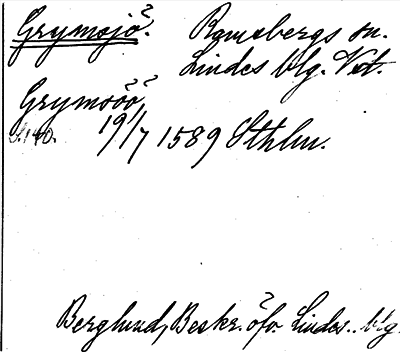 Grymsjö. Ramsbergs sn.
Lindes blg. Vst.
Grymsöö,
S. 140. 19/7 1589 Sthlm.
Berglund, Beskr. öfv. Lindes.. blg.